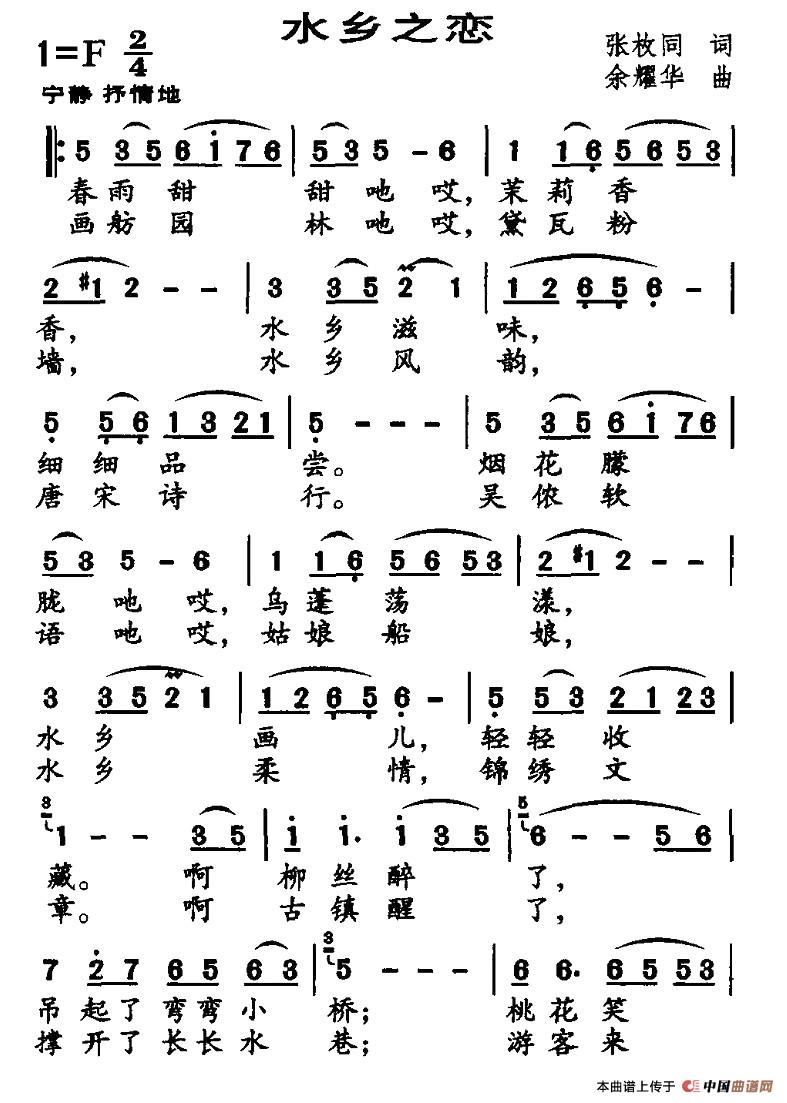 水乡之恋
1=F 2/4
张枚同 词
余耀华 曲
宁静 抒情地
5 35 6i 76 | 53 5 - 6 | 1 16 56 53 |
春雨甜 甜吔哎，茉莉香
画舫园 林吔哎，黛瓦粉
2 #1 2 - - | 3 35 2 1 | 12 65 6 - |
香， 水乡滋 味，
墙， 水乡风 韵，
5 56 13 21 | 5 - - - | 5 35 6i 76 |
细细品 尝。 烟花朦
唐宋诗 行。 吴侬软
53 5 - 6 | 1 16 56 53 | 2 #1 2 - - |
胧吔哎，乌蓬荡 漾，
语吔哎，姑娘船 娘，
3 35 2 1 | 12 65 6 - | 5 53 21 23 |
水乡 画 儿，轻轻收
水乡 柔 情，锦绣文
3 1 - - 35 | i i. i 35 | 5 6 - - 56 |
藏。 啊 柳丝醉 了，
章。 啊 古镇醒 了，
7 27 65 63 | 3 5 - - - | 6 6. 65 35 |
吊起了弯弯小 桥； 桃花笑
撑开了长长水 巷； 游客来
本曲谱上传于 中国曲谱网